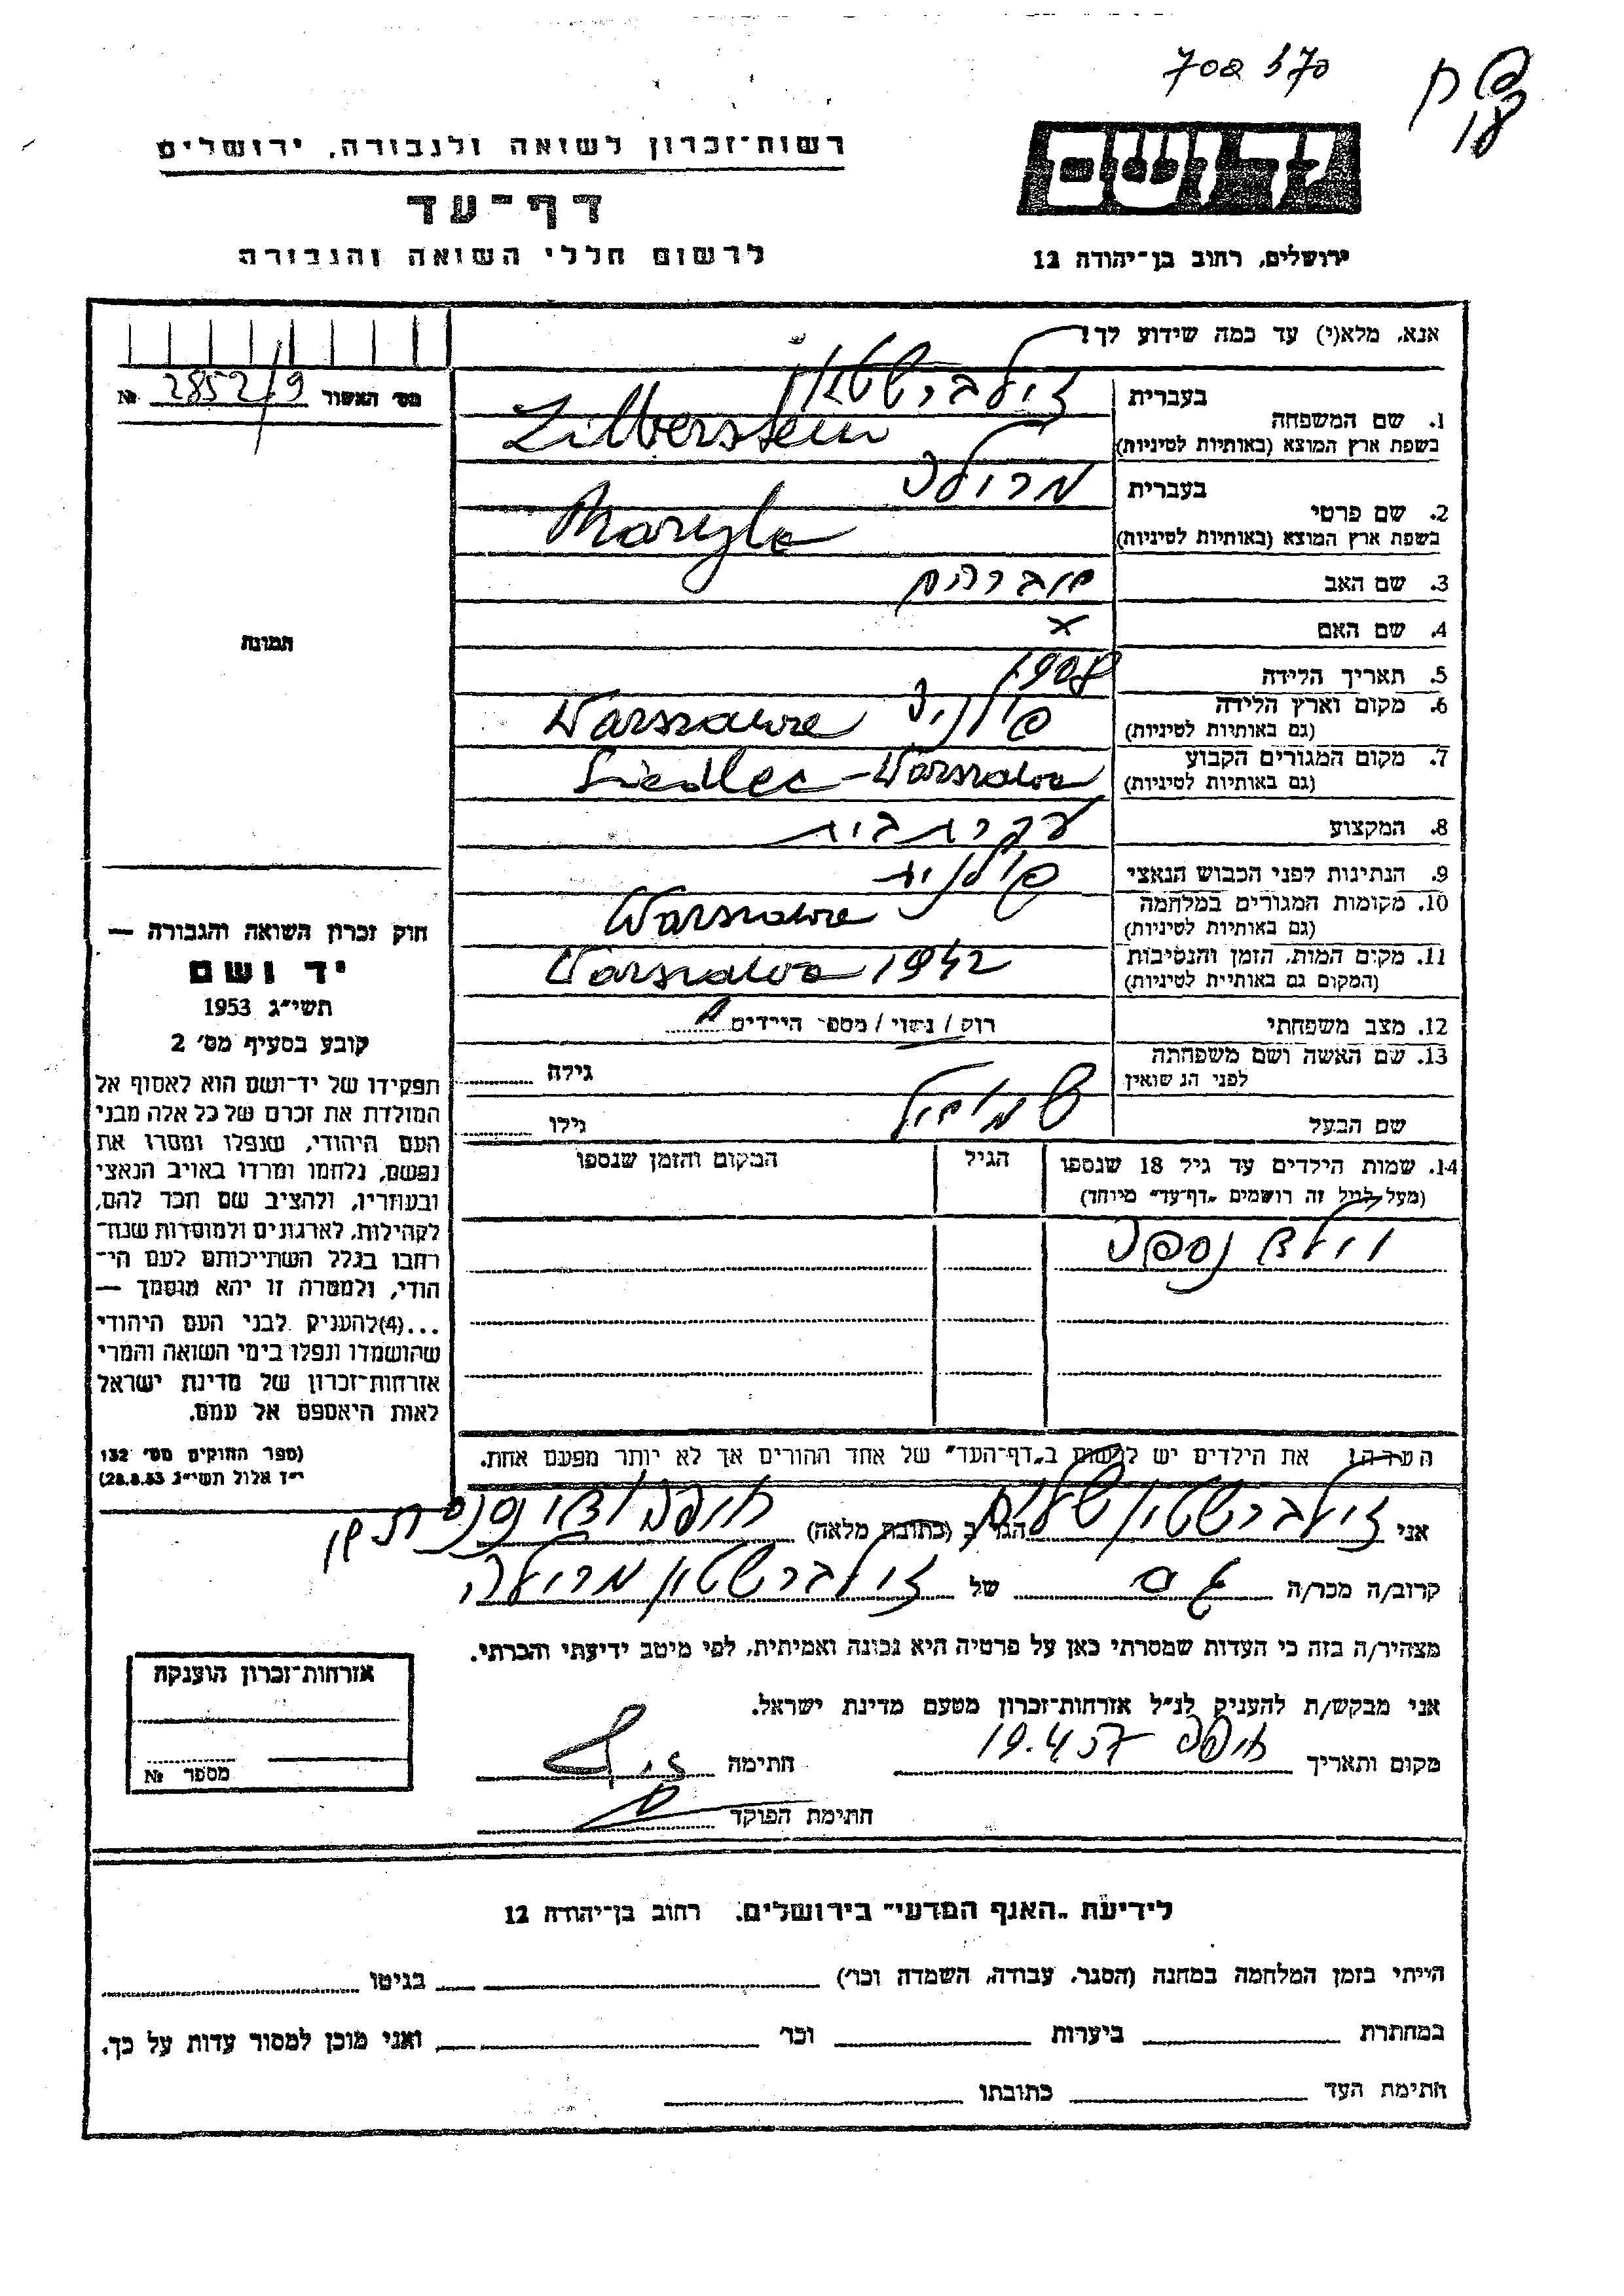 708 57
רשות־זכרון לשואה ולגבורה, ירושלים
דף־עד
לרשום חללי השואה והגבורה
יד ושם
ירושלים, רחוב בן־יהודה 12
אנא, מלא(י) עד כמה שידוע לך!
מס׳ האשור 2852/9 №
1. שם המשפחה
בעברית זילברשטאין
בשפת ארץ המוצא (באותיות לטיניות) Zilberstein
2. שם פרטי
בעברית מרילה
בשפת ארץ המוצא (באותיות לטיניות) Maryla
3. שם האב אברהם
4. שם האם x
5. תאריך הלידה 1908
6. מקום וארץ הלידה (גם באותיות לטיניות) פולניה Warszawa
7. מקום המגורים הקבוע (גם באותיות לטיניות) Siedlec - Warszawa
8. המקצוע עקרת בית
9. הנתינות לפני הכבוש הנאצי פולנית
10. מקומות המגורים במלחמה (גם באותיות לטיניות) Warszawa
11. מקום המות, הזמן והנסיבות (המקום גם באותיות לטיניות) Warszawa 1942
12. מצב משפחתי רווק / נשוי / מספר הילדים
13. שם האשה ושם משפחתה לפני הנשואין גילה
שם הבעל שמואל גילו
14. שמות הילדים עד גיל 18 שנספו הגיל המקום והזמן שנספו
(מעל לגיל זה רושמים „דף־עד״ מיוחד)
וילד נספה
הערה! את הילדים יש לרשום ב„דף־העד״ של אחד ההורים אך לא יותר מפעם אחת.
תמונה
חוק זכרון השואה והגבורה —
יד ושם
תשי״ג 1953
קובע בסעיף מס׳ 2
תפקידו של יד־ושם הוא לאסוף אל
המולדת את זכרם של כל אלה מבני
העם היהודי, שנפלו ומסרו את
נפשם, נלחמו ומרדו באויב הנאצי
ובעוזריו, ולהציב שם וזכר להם,
לקהילות, לארגונים ולמוסדות שנח־
רבו בגלל השתייכותם לעם הי־
הודי, ולמטרה זו יהא מוסמך —
...(4)להעניק לבני העם היהודי
שהושמדו ונפלו בימי השואה והמרי
אזרחות־זכרון של מדינת ישראל
לאות היאספם אל עמם.
(ספר החוקים מס׳ 132
י״ז אלול תשי״ג 28.8.53)
אני זילברשטיין שלום הגר ב (כתובת מלאה) חיפה
קרוב/ה מכר/ה גיס של זילברשטין מרילה
מצהיר/ה בזה כי העדות שמסרתי כאן על פרטיה היא נכונה ואמיתית, לפי מיטב ידיעתי והכרתי.
אני מבקש/ת להעניק לנ״ל אזרחות־זכרון מטעם מדינת ישראל.
מקום ותאריך חיפה 19.4.57 חתימה
חתימת הפוקד
אזרחות־זכרון הוענקה
מספר №
לידיעת „האגף המדעי״ בירושלים. רחוב בן־יהודה 12
הייתי בזמן המלחמה במחנה (הסגר, עבודה, השמדה וכו׳) בגיטו
במחתרת ביערות וכו׳ ואני מוכן למסור עדות על כך.
חתימת העד כתובתו